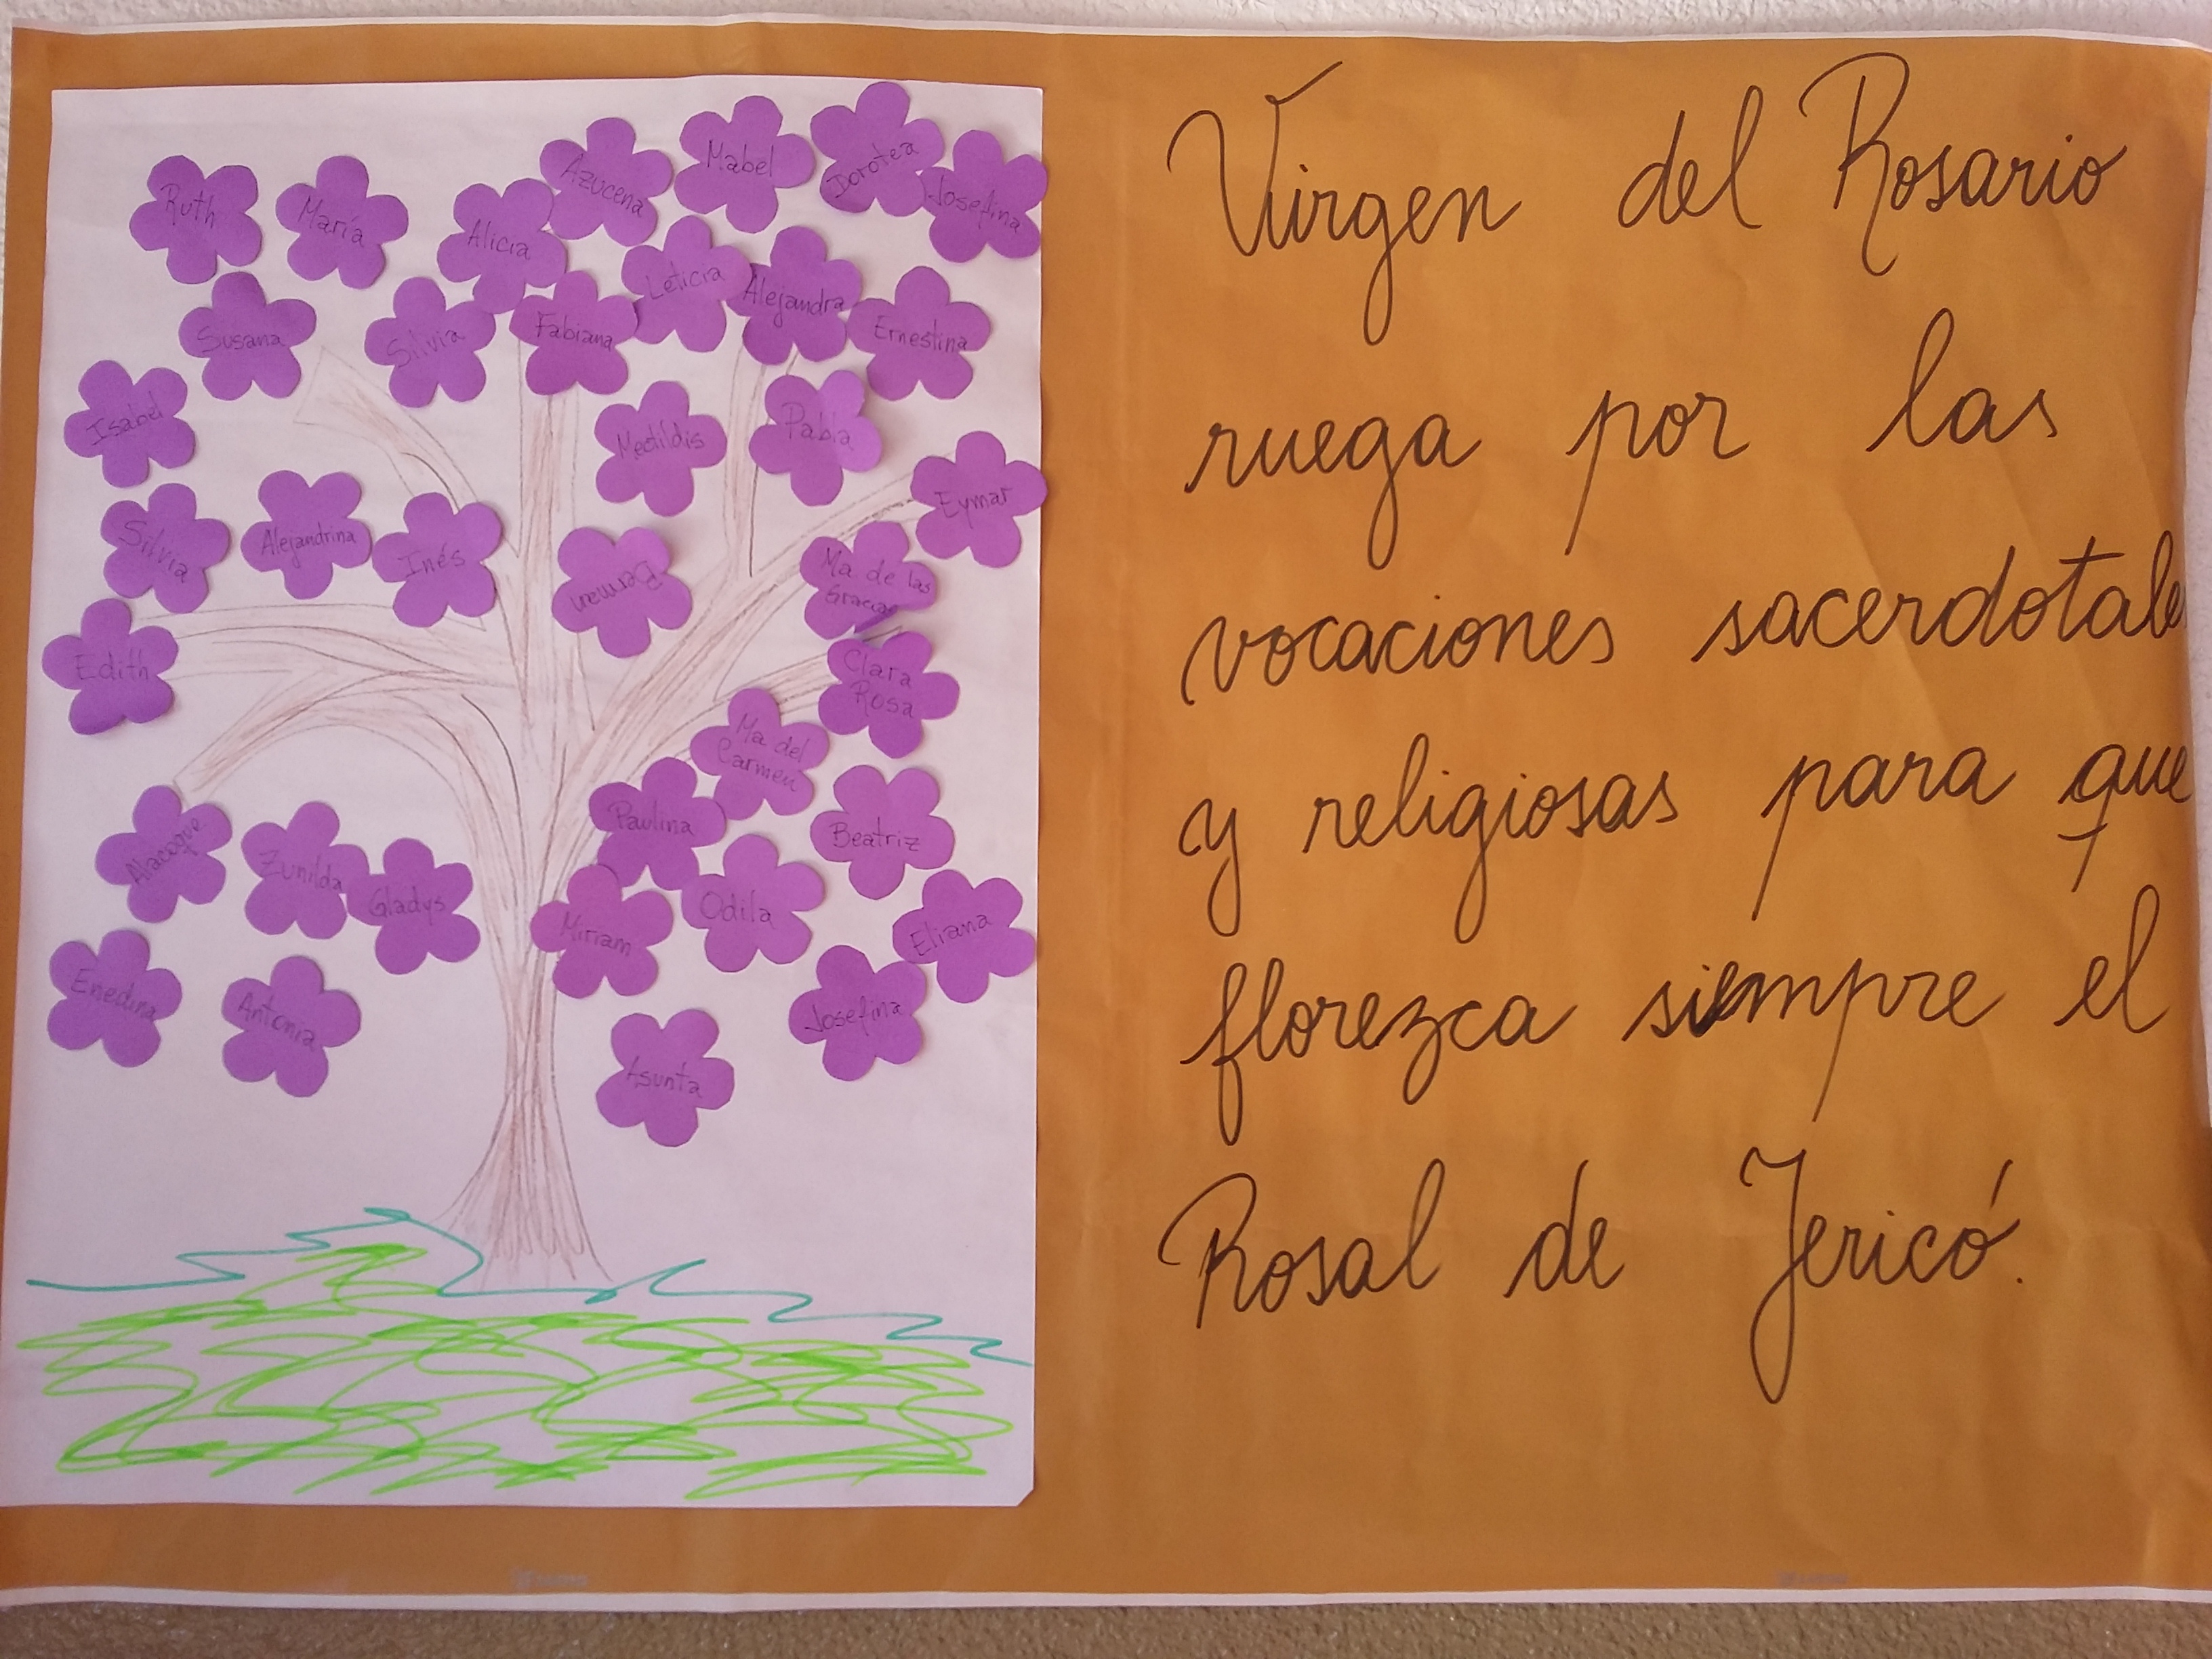 Ruth
María
Alicia
Azucena
Mabel
Dorotea
Josefina
Susana
Silvia
Fabiana
Leticia
Alejandra
Ernestina
Isabel
Mectildis
Pabla
Eymar
Silvia
Alejandrina
Inés
Ma de las
Gracias
Edith
Clara
Rosa
Ma del
Carmen
Paulina
Beatriz
Alacoque
Zunilda
Gladys
Miriam
Odila
Eliana
Enedina
Antonia
Josefina
Asunta
Virgen del Rosario
ruega por las
vocaciones sacerdotale
y religiosas para que
florezca siempre el
Rosal de Jericó.